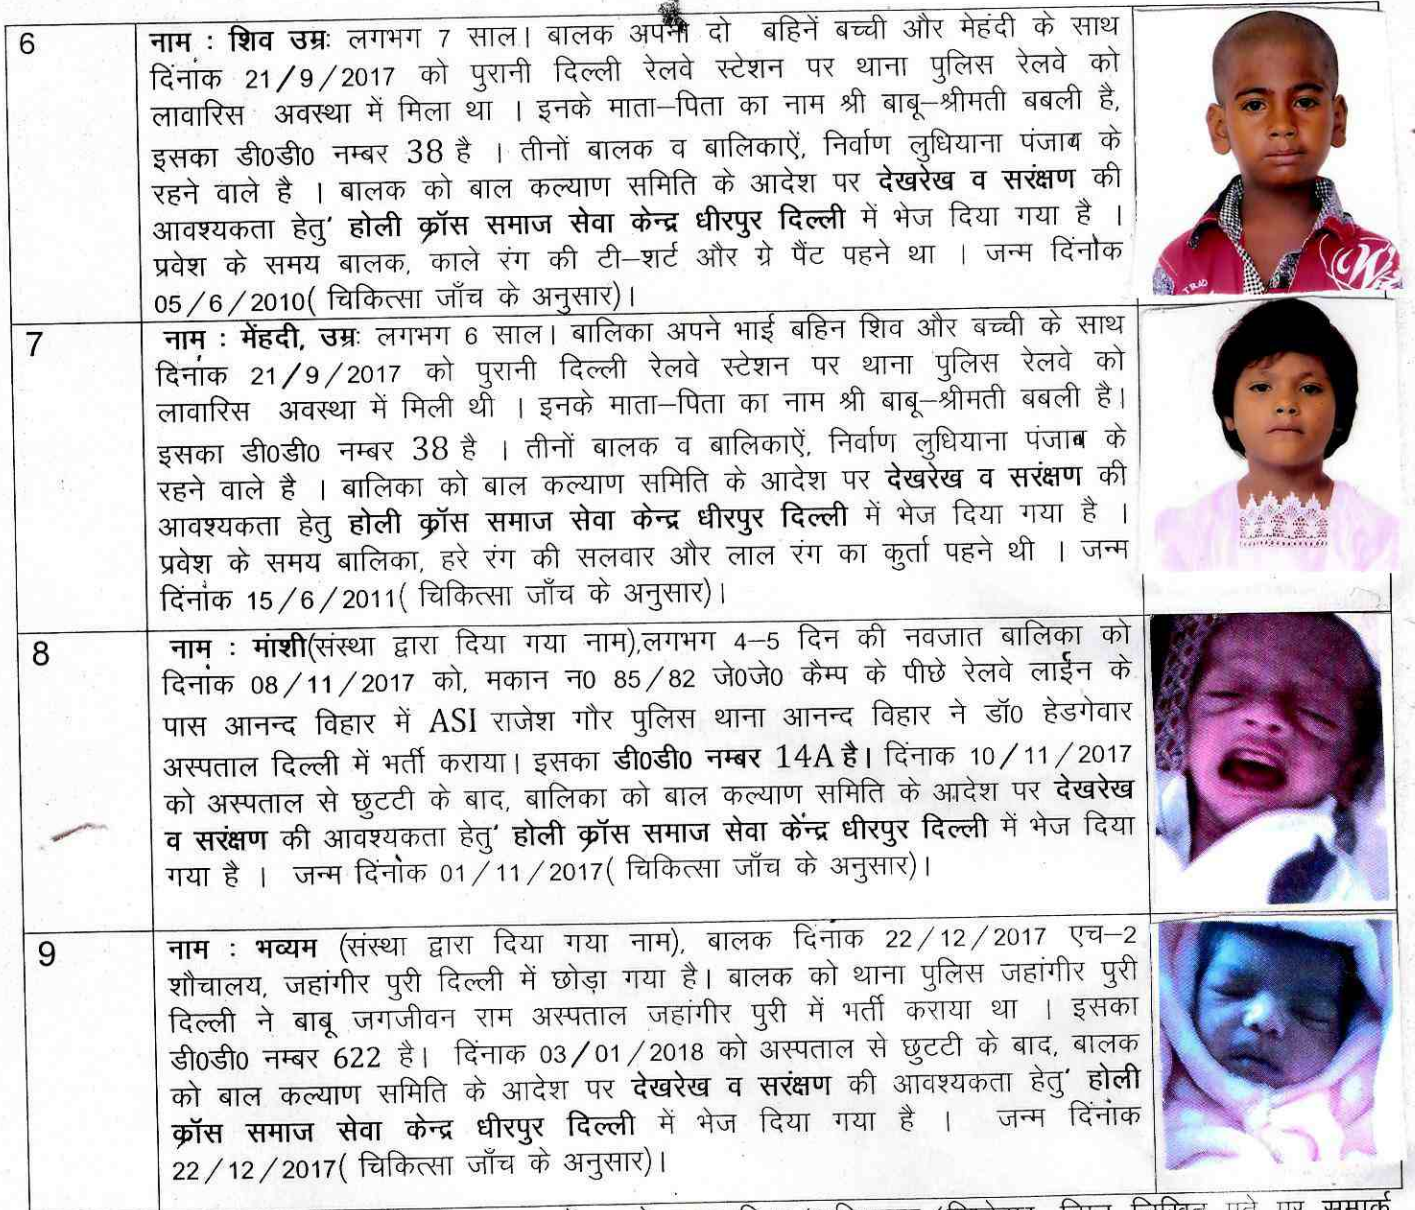 6
नाम : शिव उम्रः लगभग 7 साल। बालक अपनी दो बहिनें बच्ची और मेहंदी के साथ
दिंनाक 21/9/2017 को पुरानी दिल्ली रेलवे स्टेशन पर थाना पुलिस रेलवे को
लावारिस अवस्था में मिला था । इनके माता–पिता का नाम श्री बाबू–श्रीमती बबली है,
इसका डी0डी0 नम्बर 38 है । तीनों बालक व बालिकाऐं, निर्वाण लुधियाना पंजाब के
रहने वाले है । बालक को बाल कल्याण समिति के आदेश पर देखरेख व सरंक्षण की
आवश्यकता हेतु' होली क्रॉस समाज सेवा केन्द्र धीरपुर दिल्ली में भेज दिया गया है ।
प्रवेश के समय बालक, काले रंग की टी–शर्ट और ग्रे पैंट पहने था । जन्म दिंनांक
05/6/2010( चिकित्सा जाँच के अनुसार)।
7
नाम : मेंहदी, उम्रः लगभग 6 साल। बालिका अपने भाई बहिन शिव और बच्ची के साथ
दिनांक 21/9/2017 को पुरानी दिल्ली रेलवे स्टेशन पर थाना पुलिस रेलवे को
लावारिस अवस्था में मिली थी । इनके माता–पिता का नाम श्री बाबू–श्रीमती बबली है।
इसका डी0डी0 नम्बर 38 है । तीनों बालक व बालिकाऐं, निर्वाण लुधियाना पंजाब के
रहने वाले है । बालिका को बाल कल्याण समिति के आदेश पर देखरेख व सरंक्षण की
आवश्यकता हेतु होली क्रॉस समाज सेवा केन्द्र धीरपुर दिल्ली में भेज दिया गया है ।
प्रवेश के समय बालिका, हरे रंग की सलवार और लाल रंग का कुर्ता पहने थी । जन्म
दिंनांक 15/6/2011( चिकित्सा जाँच के अनुसार)।
8
नाम : मांशी(संस्था द्वारा दिया गया नाम),लगभग 4–5 दिन की नवजात बालिका को
दिनांक 08/11/2017 को, मकान न0 85/82 जे0जे0 कैम्प के पीछे रेलवे लाईन के
पास आनन्द विहार में ASI राजेश गौर पुलिस थाना आनन्द विहार ने डॉ0 हेडगेवार
अस्पताल दिल्ली में भर्ती कराया। इसका डी0डी0 नम्बर 14A है। दिंनाक 10/11/2017
को अस्पताल से छुटटी के बाद, बालिका को बाल कल्याण समिति के आदेश पर देखरेख
व सरंक्षण की आवश्यकता हेतु' होली क्रॉस समाज सेवा केंन्द्र धीरपुर दिल्ली में भेज दिया
गया है । जन्म दिंनांक 01/11/2017( चिकित्सा जाँच के अनुसार)।
9
नाम : भव्यम (संस्था द्वारा दिया गया नाम), बालक दिनांक 22/12/2017 एच–2
शौचालय, जहांगीर पुरी दिल्ली में छोड़ा गया है। बालक को थाना पुलिस जहांगीर पुरी
दिल्ली ने बाबू जगजीवन राम अस्पताल जहांगीर पुरी में भर्ती कराया था । इसका
डी0डी0 नम्बर 622 है। दिंनाक 03/01/2018 को अस्पताल से छुटटी के बाद, बालक
को बाल कल्याण समिति के आदेश पर देखरेख व सरंक्षण की आवश्यकता हेतु' होली
क्रॉस समाज सेवा केन्द्र धीरपुर दिल्ली में भेज दिया गया है । जन्म दिंनांक
22/12/2017( चिकित्सा जाँच के अनुसार)।
पते पर सम्पर्क